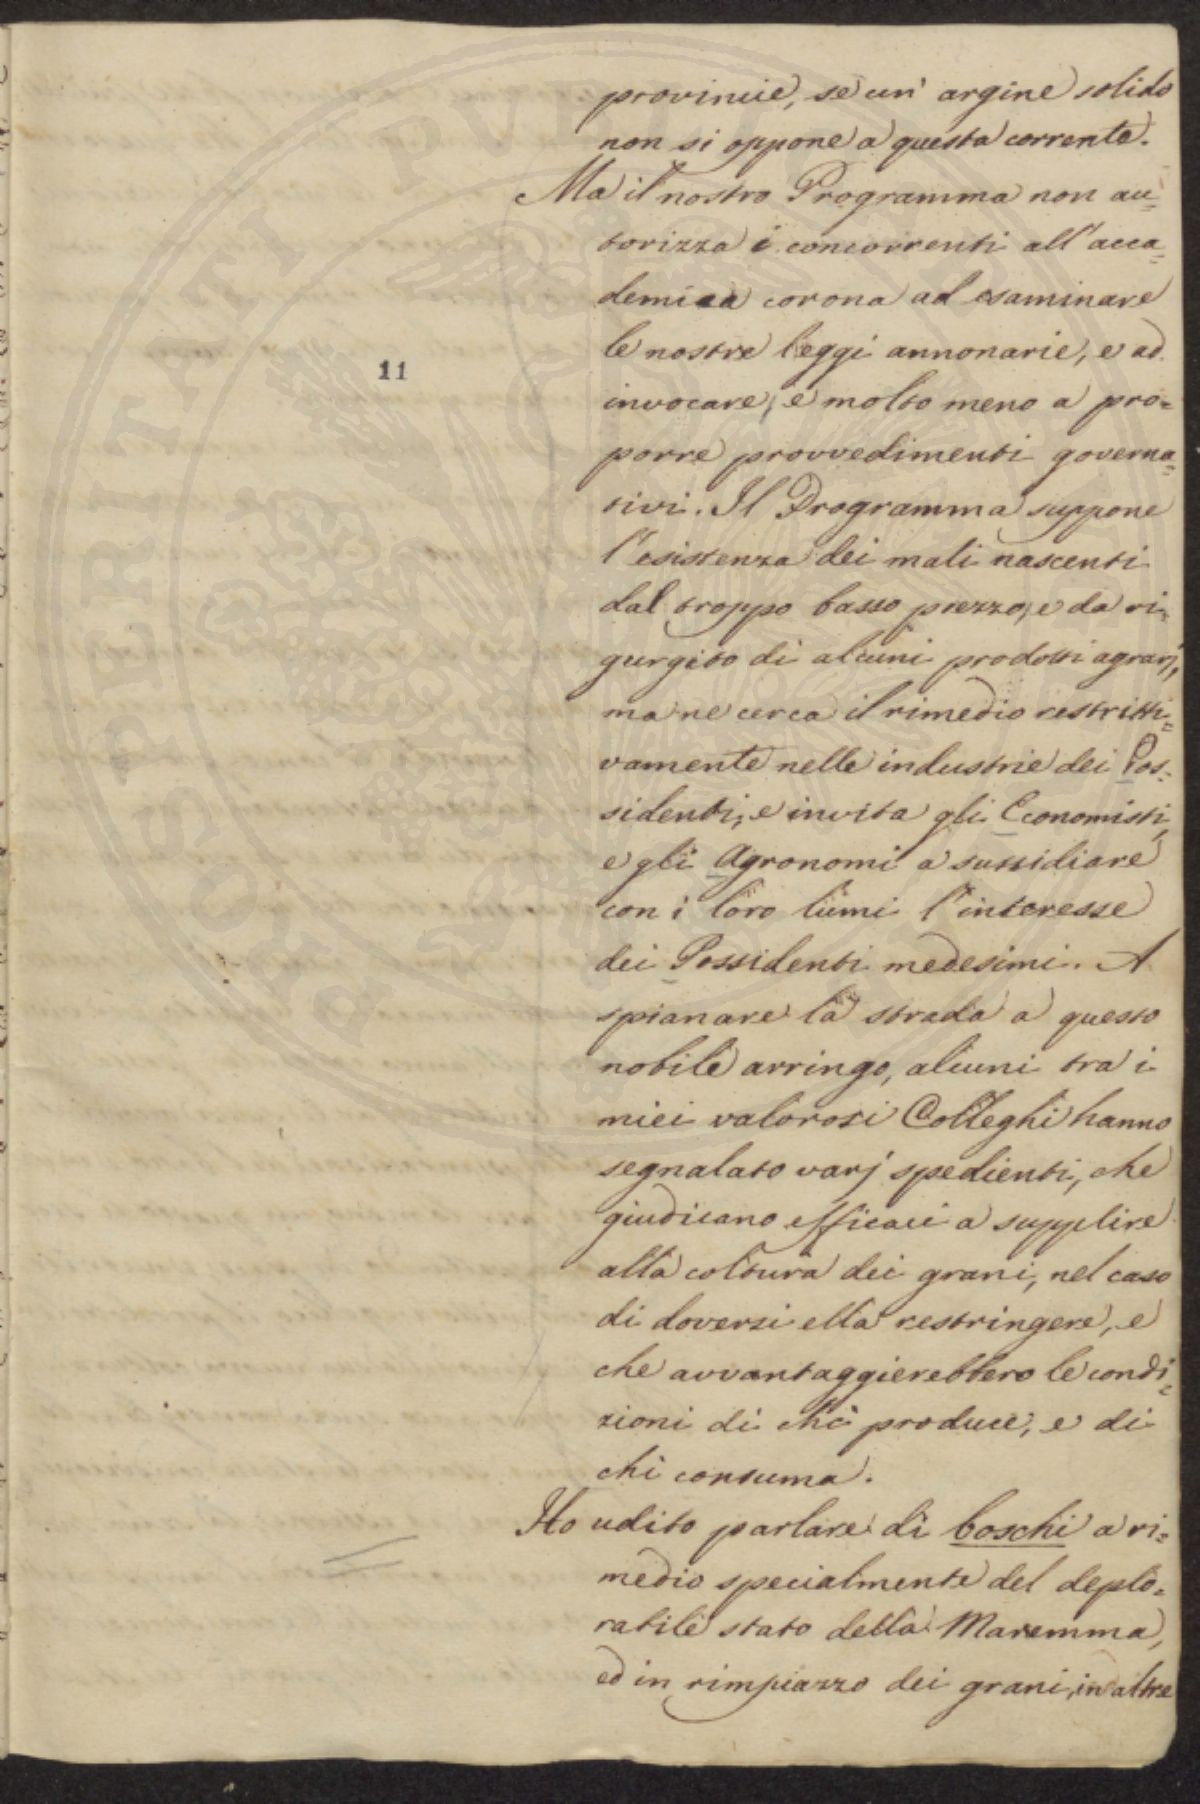 provincie, se un' argine solido
non si oppone a questa corrente.
Ma il nostro Programma non au=
torizza i concorrenti all' acca=
demica corona ad esaminare
le nostre leggi annonarie, e ad
invocare, e molto meno a pro=
porre provvedimenti governa=
tivi. Il Programma suppone
l'esistenza dei mali nascenti
dal troppo basso prezzo, e da ri=
gurgito di alcuni prodotti agrarj,
ma ne cerca il rimedio restritti=
vamente nelle industrie dei Pos=
sidenti, e invita gli Economisti,
e gli Agronomi a sussidiare
con i loro lumi l'interesse
dei Possidenti medesimi. A
spianare la strada a questo
nobile arringo, alcuni tra i
miei valorosi Colleghi hanno
segnalato varj spedienti, che
giudicano efficaci a supplire
alla coltura dei grani, nel caso
di doversi ella restringere, e
che avvantaggierebbero le condi=
zioni di chi produce, e di
chi consuma.
Ho udito parlare di boschi a ri=
medio specialmente del deplo=
rabile stato della Maremma,
ed in rimpiazzo dei grani, in altre
11
PROSPERITATI PVBLICAE